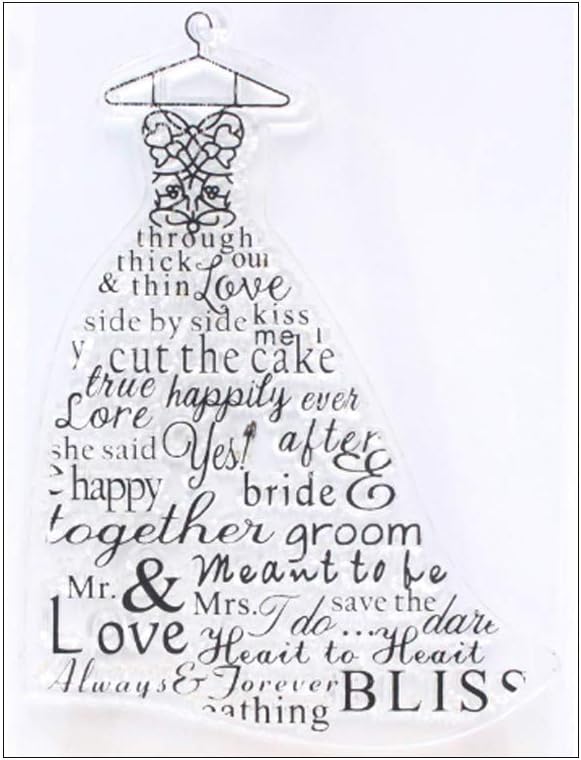 through
thick our
& thin Love
side by side kiss
me
y cut the cake
true happily ever
Lore
she said Yes! after
happy bride &
together groom
Mr. & Meant to be
Mrs. I do... save the dare
Love Heait to Heait
Always & Forever BLISS
athing